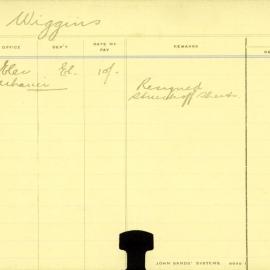 Wiggins
OFFICE DEP'T RATE OF PAY REMARKS
Elec El. 10/- Resigned
Struck off Sheets
JOHN SANDS' SYSTEMS